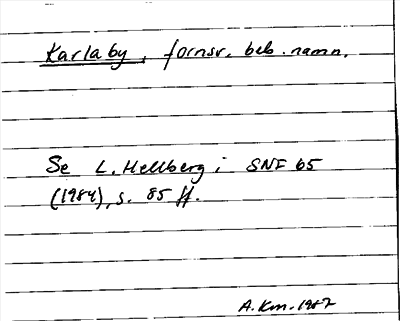 Karlaby, fornsv. beb.namn.
Se L. Hellberg i SNF 65
(1984), s. 85 ff.
A. Km. 1987